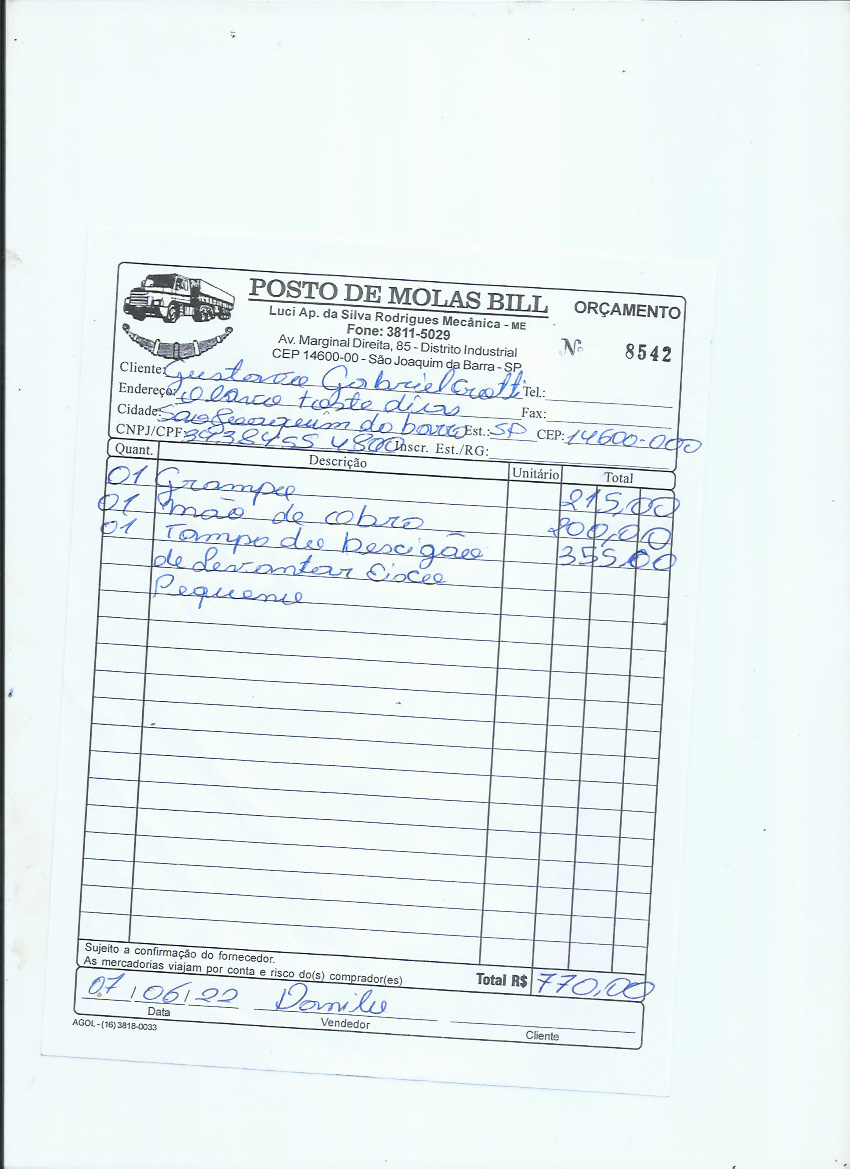 POSTO DE MOLAS BILL
ORÇAMENTO
Luci Ap. da Silva Rodrigues Mecânica - ME
Fone: 3811-5029
Av. Marginal Direita, 85 - Distrito Industrial
CEP 14600-00 - São Joaquim da Barra - SP
Nº 8542
Cliente: Gustavo Gabriel Tel.:
Endereço: Fax:
Cidade: São Joaquim da barra Est.: SP CEP: 14600-000
CNPJ/CPF: Inscr. Est./RG:
Quant. Descrição Unitário Total
01 Grampo 215,00
01 mão de obra 200,00
01 Tampo do 355,00
de Levantar Eixo
Pequeno
Sujeito a confirmação do fornecedor.
As mercadorias viajam por conta e risco do(s) comprador(es)
Total R$ 770,00
07/06/22 Danilo
Data Vendedor Cliente
AGOL - (16) 3818-0033